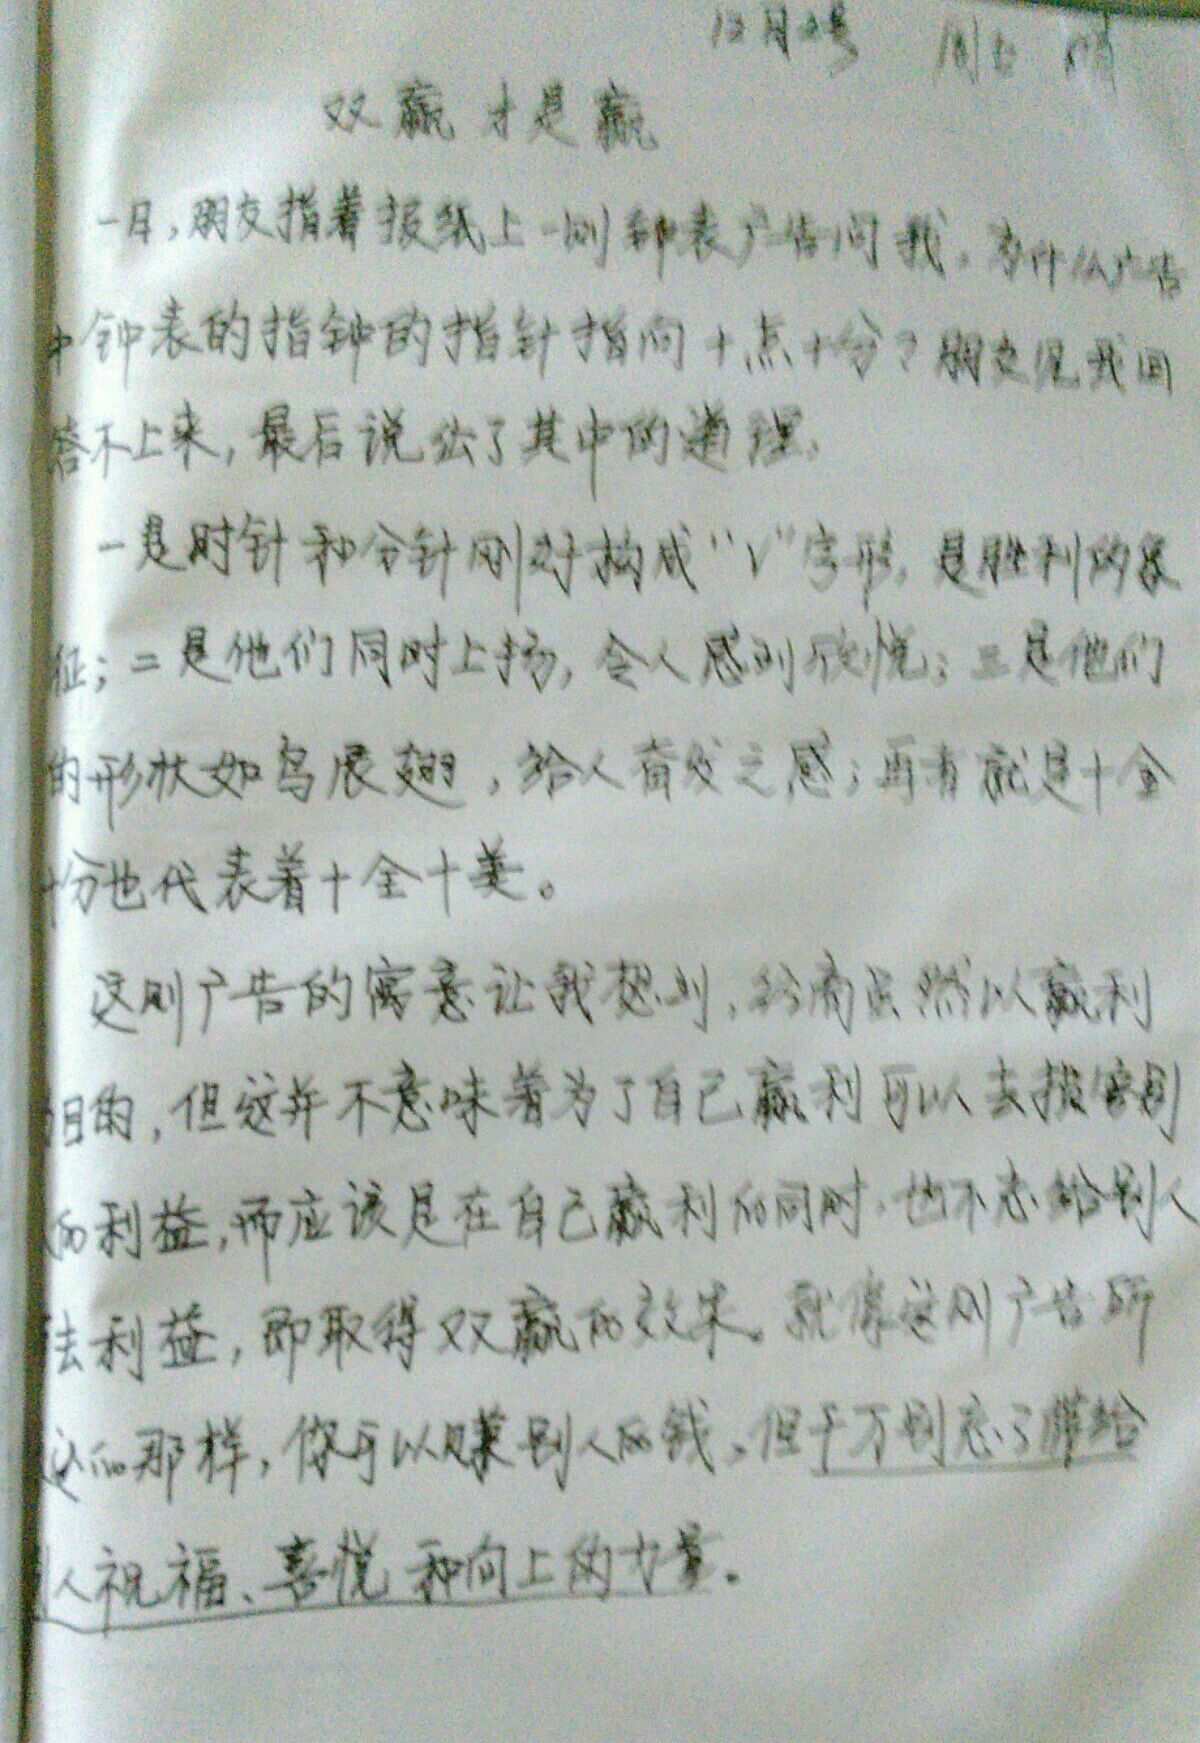 12月2号 周五 晴
双赢才是赢
一日，朋友指着报纸上一则钟表广告问我，为什么广告
中钟表的指钟的指针指向十点十分？朋友见我回
答不上来，最后说出了其中的道理。
一是时针和分针刚好构成“V”字形，是胜利的象
征；二是他们同时上扬，令人感到欣悦；三是他们
的形状如鸟展翅，给人奋发之感；再有就是十全
十份也代表着十全十美。
这则广告的寓意让我想到，经商虽然以赢利
目的，但这并不意味着为了自己赢利可以去损害别
的利益，而应该是在自己赢利的同时，也不忘给别人
法利益，即取得双赢的效果。就像这则广告所
这的那样，你可以赚别人的钱，但千万别忘了带给
别人祝福、喜悦和向上的力量。